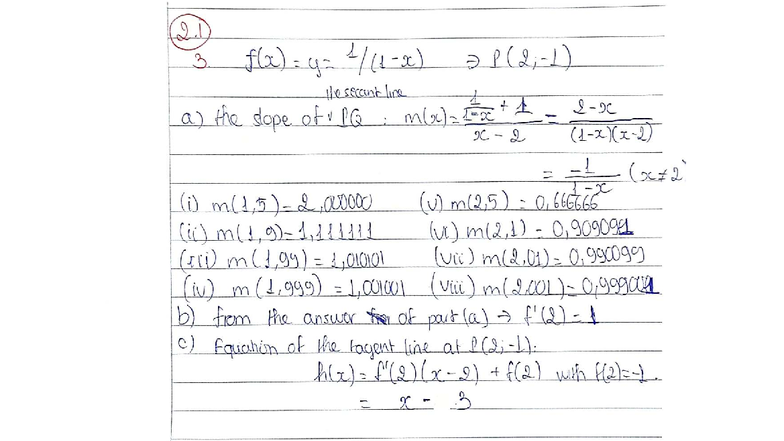 2.1
3. f(x) = y = 1/(1-x) ⇒ P(2;-1)
the secant line
a) the slope of PQ : m(x) = (1/(1-x) + 1)/(x-2) = (2-x)/((1-x)(x-2))
= -1/(1-x) (x≠2)
(i) m(1,5) = 2,000000 (v) m(2,5) = 0,666666
(ii) m(1,9) = 1,111111 (vi) m(2,1) = 0,909091
(iii) m(1,99) = 1,010101 (vii) m(2,01) = 0,990099
(iv) m(1,999) = 1,001001 (viii) m(2.001) = 0,999001
b) from the answer of part (a) → f'(2) = 1
c) Equation of the tagent line at P(2;-1):
h(x) = f'(2)(x-2) + f(2) with f(2)=-1.
= x - 3